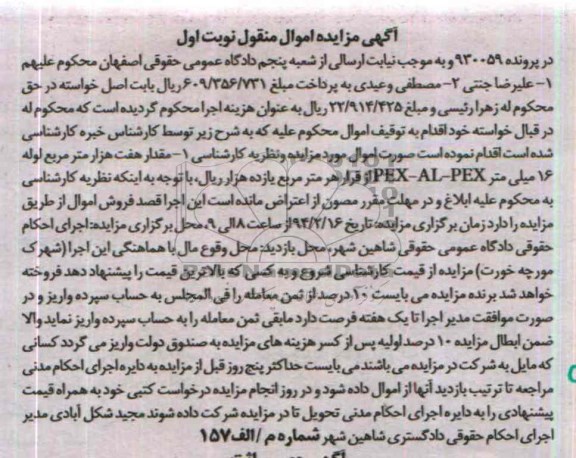 آگهی مزایده اموال منقول نوبت اول
در پرونده ۹۳۰۰۵۹ و به موجب نیابت ارسالی از شعبه پنجم دادگاه عمومی حقوقی اصفهان محکوم علیهم
۱- علیرضا جنتی ۲- مصطفی وعیدی به پرداخت مبلغ ۶۰۹/۳۵۶/۷۳۱ ریال بابت اصل خواسته در حق
محکوم له زهرا رئیسی و مبلغ ۲۲/۹۱۴/۴۲۵ ریال به عنوان هزینه اجرا محکوم گردیده است که محکوم له
در قبال خواسته خود اقدام به توقیف اموال محکوم علیه که به شرح زیر توسط کارشناس خبره کارشناسی
شده است اقدام نموده است صورت اموال مورد مزایده ونظریه کارشناسی ۱- مقدار هفت هزار متر مربع لوله
۱۶ میلی متر PEX-AL-PEX از قرار هر متر مربع یازده هزار ریال، با توجه به اینکه نظریه کارشناسی
به محکوم علیه ابلاغ و در مهلت مقرر مصون از اعتراض مانده است این اجرا قصد فروش اموال از طریق
مزایده را دارد زمان برگزاری مزایده: تاریخ ۹۴/۲/۱۶ از ساعت ۸ الی ۹، محل برگزاری مزایده: اجرای احکام
حقوقی دادگاه عمومی حقوقی شاهین شهر، محل بازدید: محل وقوع مال با هماهنگی این اجرا (شهرک
مورچه خورت) مزایده از قیمت کارشناسی شروع و به کسی که بالاترین قیمت را پیشنهاد دهد فروخته
خواهد شد برنده مزایده می بایست ۱۰ درصد از ثمن معامله را فی المجلس به حساب سپرده واریز و در
صورت موافقت مدیر اجرا تا یک هفته فرصت دارد مابقی ثمن معامله را به حساب سپرده واریز نماید والا
ضمن ابطال مزایده ۱۰ درصد اولیه پس از کسر هزینه های مزایده به صندوق دولت واریز می گردد کسانی
که مایل به شرکت در مزایده می باشند می بایست حداکثر پنج روز قبل از مزایده به دایره اجرای احکام مدنی
مراجعه تا ترتیب بازدید آنها از اموال داده شود و در روز انجام مزایده درخواست کتبی خود به همراه قیمت
پیشنهادی را به دایره اجرای احکام مدنی تحویل تا در مزایده شرکت داده شوند مجید شکل آبادی مدیر
اجرای احکام حقوقی دادگستری شاهین شهر شماره م/الف ۱۵۷